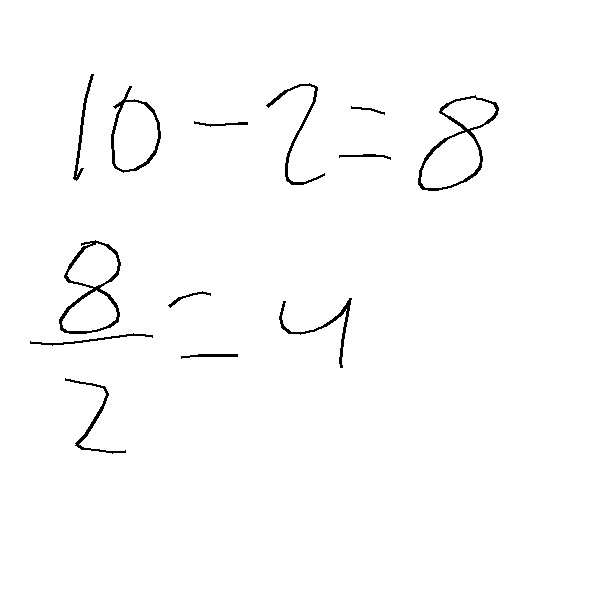 10 - 2 = 8
8/2 = 4